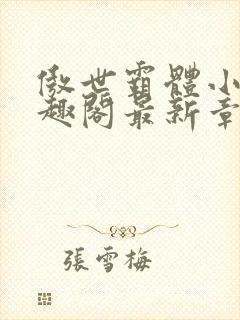 傲世霸體小
趣閣最新章
張雪梅